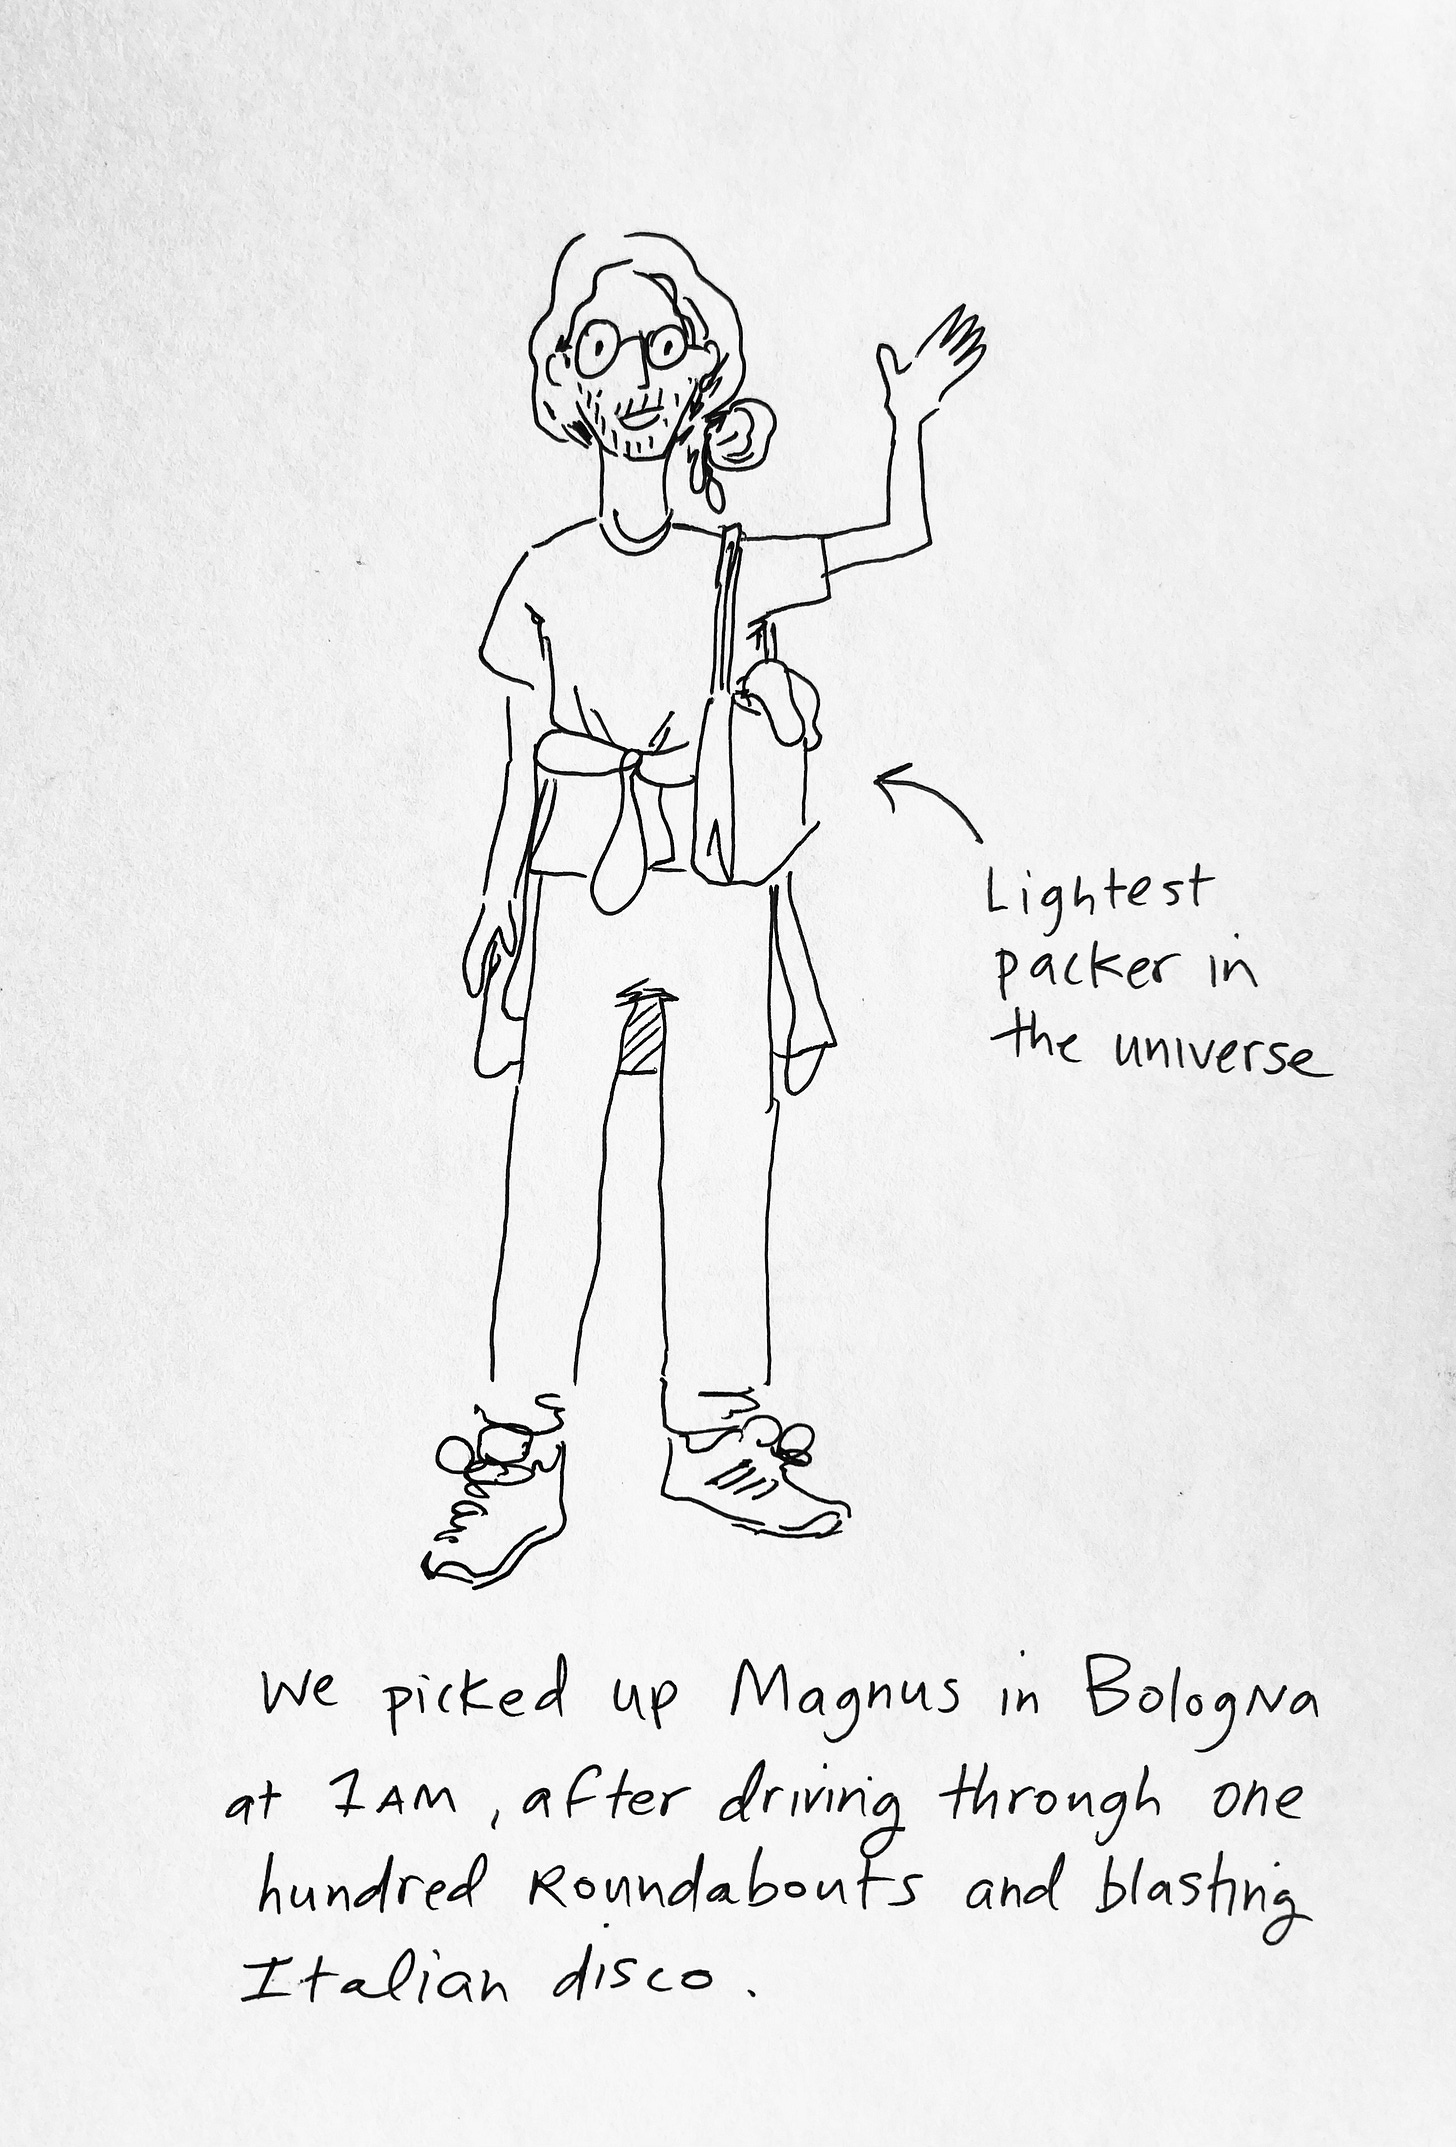 Lightest
packer in
the universe
We picked up Magnus in Bologna
at 1AM, after driving through one
hundred Roundabouts and blasting
Italian disco.